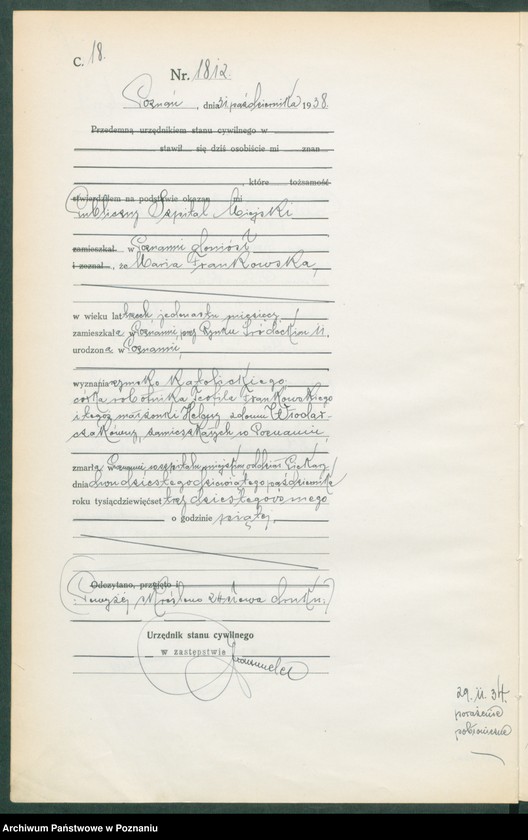 C. 18.
Nr. 1812.
Poznań, dnia 31 października 1938.
Przedemną urzędnikiem stanu cywilnego w
stawił się dziś osobiście mi znan
, które tożsamość
stwierdziłem na podstawie okazan mi
Publiczny Szpital Miejski
zamieszkał w Poznaniu doniósł
i zeznał, że Maria Frankowska,
w wieku lat trzech, jedenastu miesięcy
zamieszkała w Poznaniu, przy Rynku Śródeckim 11.
urodzona w Poznaniu,
wyznania rzymsko katolickiego
córka robotnika Teofila Frankowskiego
i tegoż małżonki Heleny z domu Włodar-
czakówny, zamieszkałych w Poznaniu,
zmarła w Poznaniu w szpitalu miejskim oddział
dnia dwudziestego dziewiątego października
roku tysiącdziewięćset trzydziestego ósmego
o godzinie piątej.
Odczytano, przyjęto i
Powyżej skreślono słowa druku.
Urzędnik stanu cywilnego
w zastępstwie
29. 11. 34.
porażenie
Archiwum Państwowe w Poznaniu